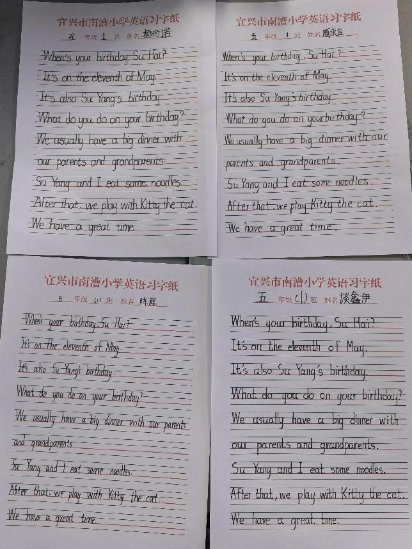 宜兴市南漕小学英语习字纸
五 年级 1 班 姓名
When's your birthday, Su Hai?
It's on the eleventh of May.
It's also Su Yang's birthday.
What do you do on your birthday?
We usually have a big dinner with
our parents and grandparents.
Su Yang and I eat some noodles.
After that, we play with Kitty the cat.
We have a great time.
宜兴市南漕小学英语习字纸
五 年级 1 班 姓名
When's your birthday, Su Hai?
It's on the eleventh of May.
It's also Su Yang's birthday.
What do you do on your birthday?
We usually have a big dinner with our
parents and grandparents.
Su Yang and I eat some noodles.
After that, we play Kitty the cat.
We have a great time.
宜兴市南漕小学英语习字纸
五 年级 (1) 班 姓名
When your birthday, Su Hai?
It's on the eleventh of May.
It's also Su Yang's birthday.
What do you do on your birthday?
We usually have a big dinner with our parents
and grandparents.
Su Yang and I eat some noodles.
After that, we play with Kitty the cat.
We have a great time.
宜兴市南漕小学英语习字纸
五 年级 (1) 班 姓名
When's your birthday, Su Hai?
It's on the eleventh of May.
It's also Su Yang's birthday.
What do you do on your birthday?
We usually have a big dinner with
our parents and grandparents.
Su Yang and I eat some noodles.
After that, we play with Kitty the cat.
We have a great time.